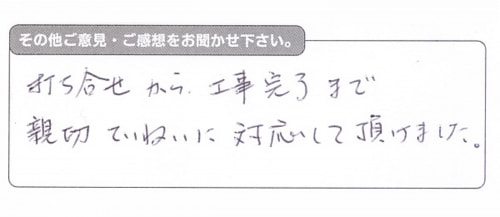 その他ご意見・ご感想をお聞かせ下さい。
打ち合せから、工事完了まで
親切ていねいに対応して頂けました。